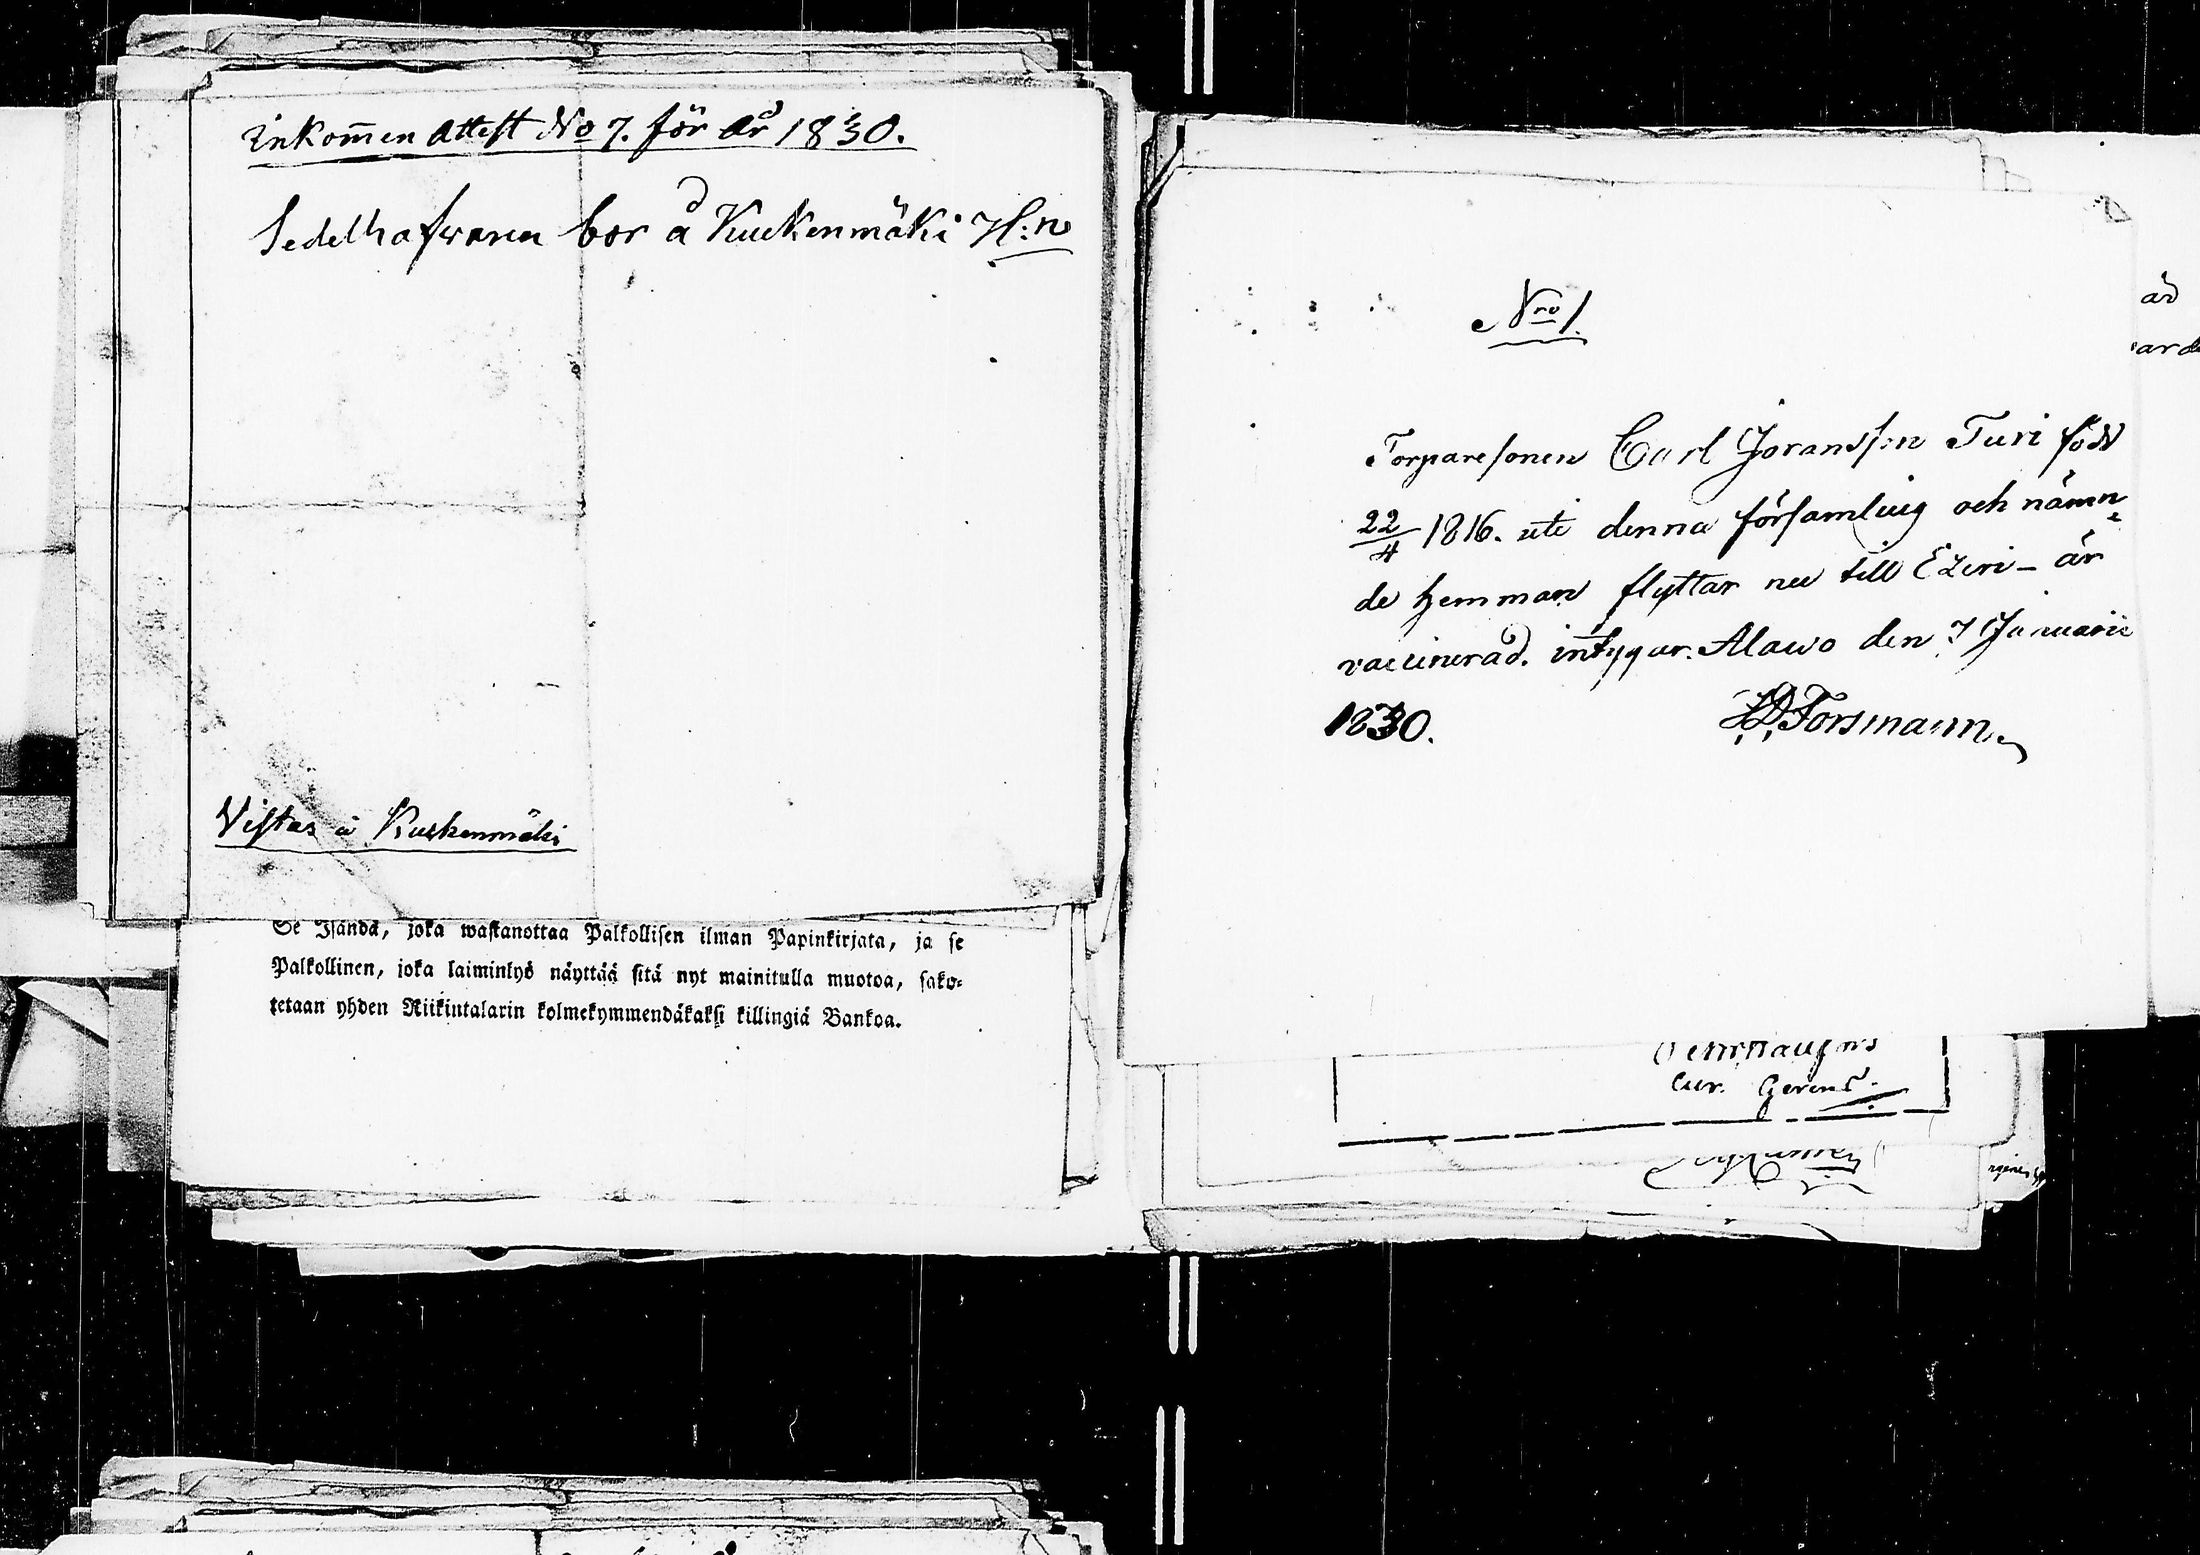 Inkom̄en Attest No 7. för År 1830.
Sedelhafwaren bor å Kuckenmäki H:n
Vistas å Kuckenmäki
Se Isändä, joka wastanottaa Palkollisen ilman Papinkirjata, ja se
Palkollinen, joka laiminlyö näyttää sitä nyt mainitulla muotoa, sako-
tetaan yhden Riikintalarin kolmekymmendäkaksi killingiä Bankoa.
Nro 1.
Torparesonen Carl Joransson Turi född
22/4 1816. uti denna församling och nämn-
de hemman flyttar nu till Ezeri - är
vaccinerad. intygar. Alawo den 7 Januarii
1830. Forsmann.
Cur. Gerens.